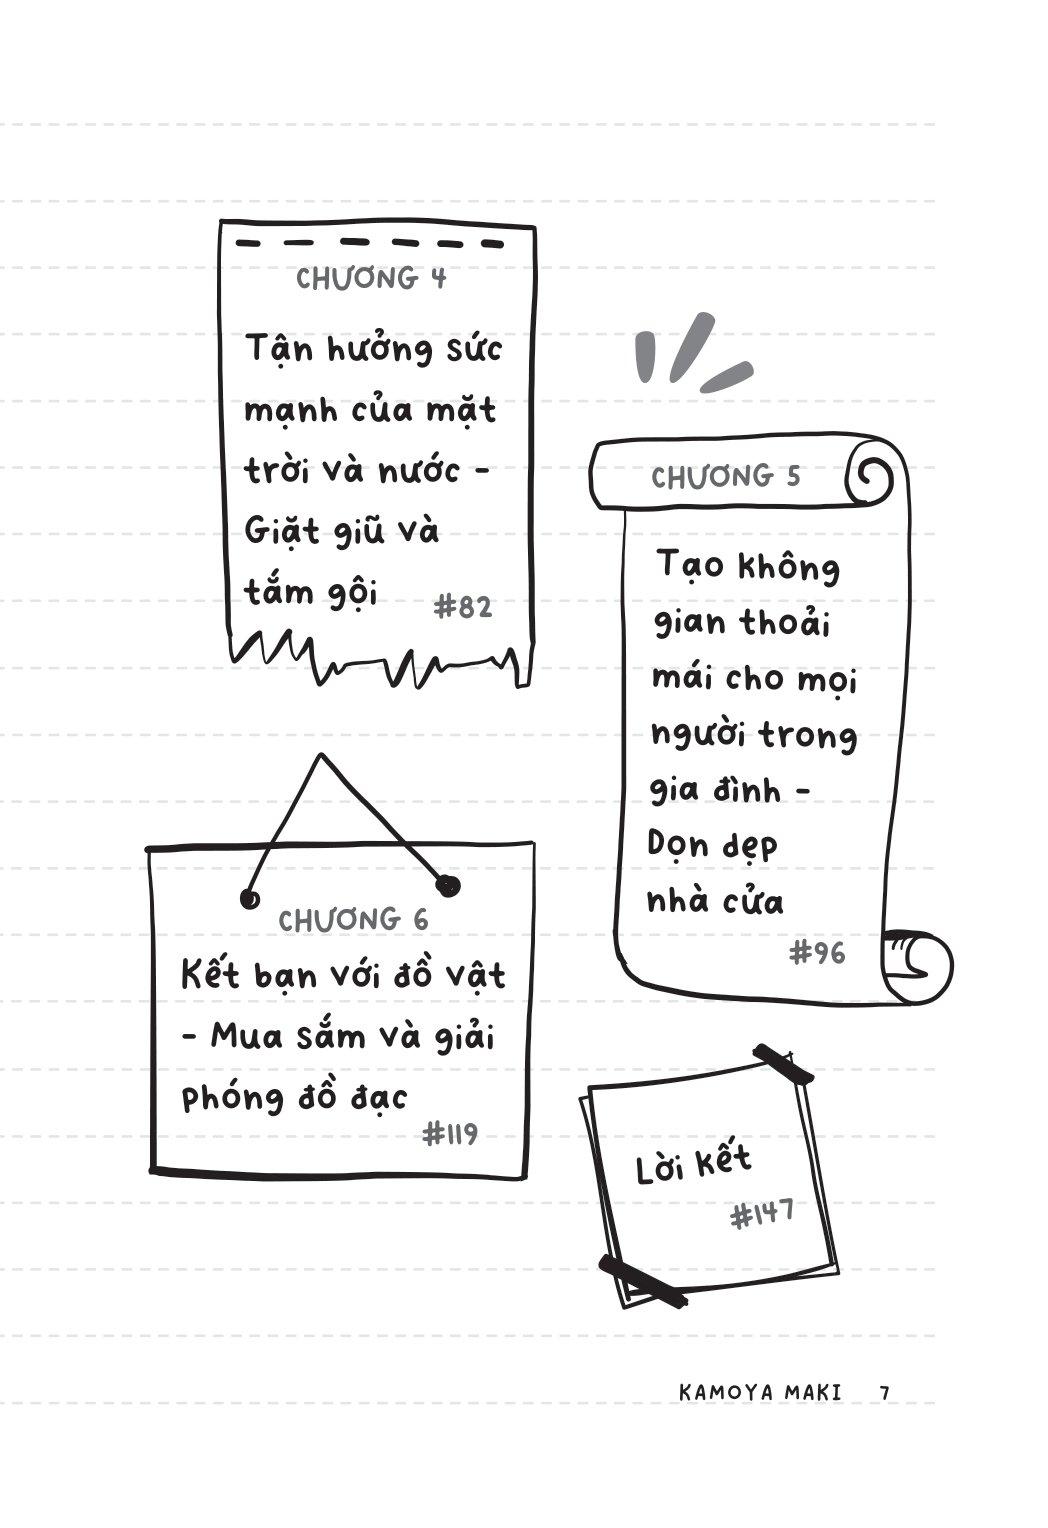 CHƯƠNG 4
Tận hưởng sức
mạnh của mặt
trời và nước -
Giặt giũ và
tắm gội
#82
CHƯƠNG 5
Tạo không
gian thoải
mái cho mọi
người trong
gia đình -
Dọn dẹp
nhà cửa
#96
CHƯƠNG 6
Kết bạn với đồ vật
- Mua sắm và giải
phóng đồ đạc
#119
Lời kết
#147
KAMOYA MAKI 7